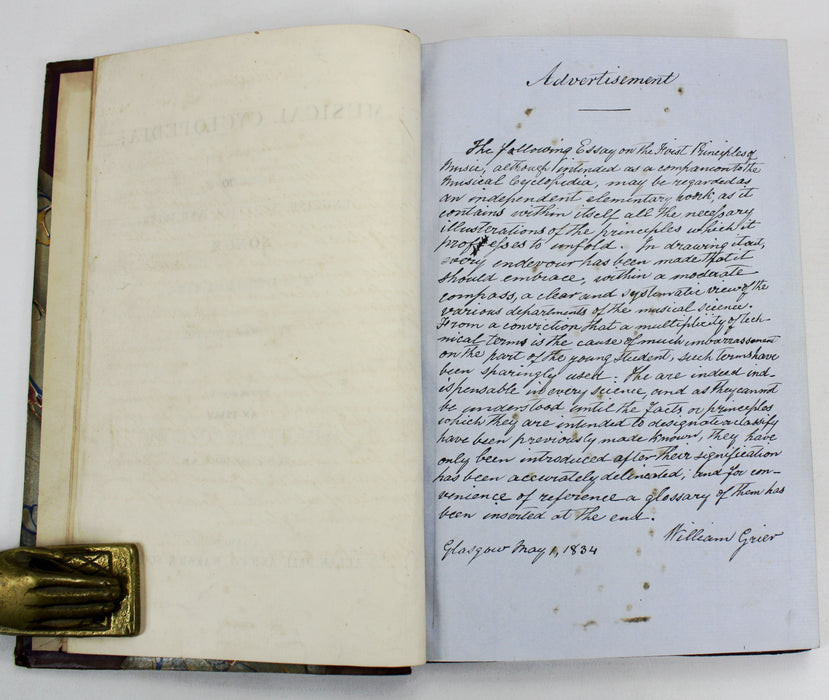 MUSICAL CYCLOPEDIA;
TO
SONGS
AN ESSAY
Advertisement
The following Essay on the First Principles of
Music, although intended as a companion to the
Musical Cyclopidia, may be regarded as
an independent elementary work, as it
contains within itself all the necessary
illustrations of the principles which it
professes to unfold. In drawing it out,
every endevour has been made that it
should embrace, within a moderate
compass, a clear and systematic view of the
various departments of the musical science.
From a conviction that a multiplicity of tech-
nical terms is the cause of much imbarrassment
on the part of the young student, such terms have
been sparingly used. The are indeed ind-
ispensable in every science, and as they cannot
be understood until the facts or principles
which they are intended to designate or classify
have been previously made known, they have
only been introduced after their signification
has been accurately delineated; and for con-
venience of reference a glossary of them has
been inserted at the end.
William Grier
Glasgow May 1, 1834